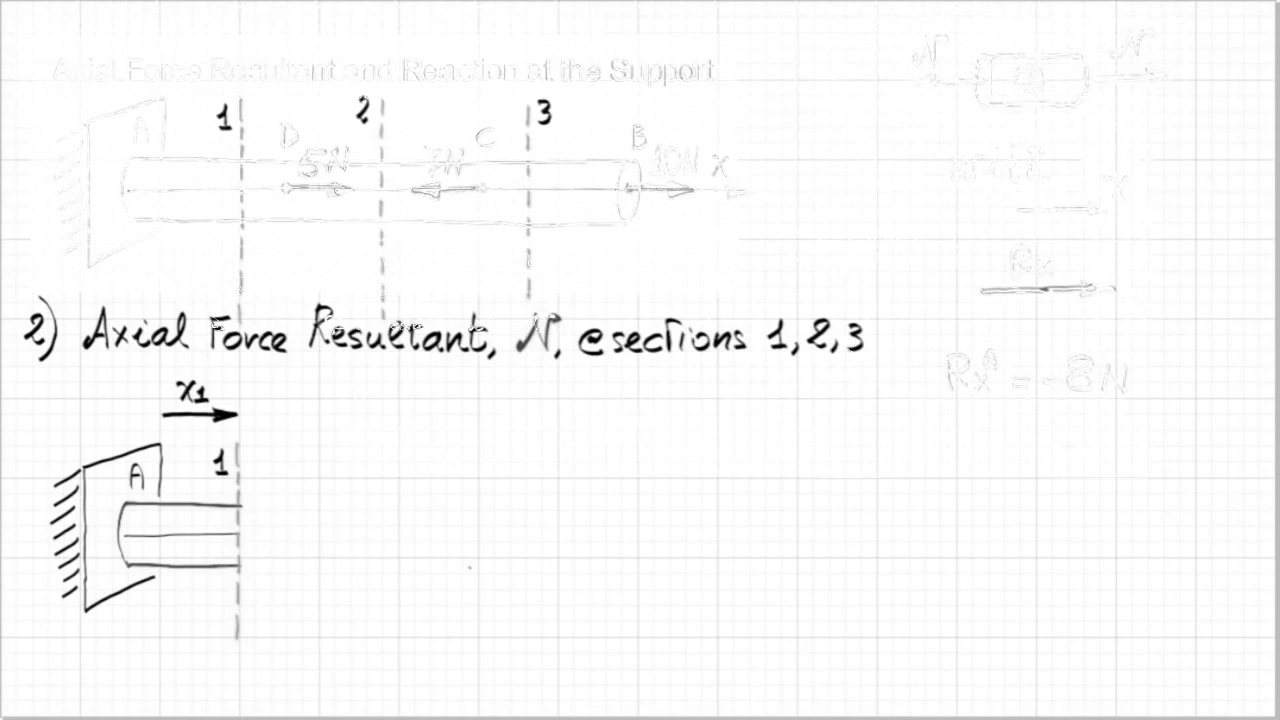 Axial Force Resultant and Reaction at the Support
N N
1 2 3
A D C B
5N 7N 10N x
x
Rx
2) Axial Force Resultant, N, @sections 1,2,3
Rx^A = -8N
x1
A 1